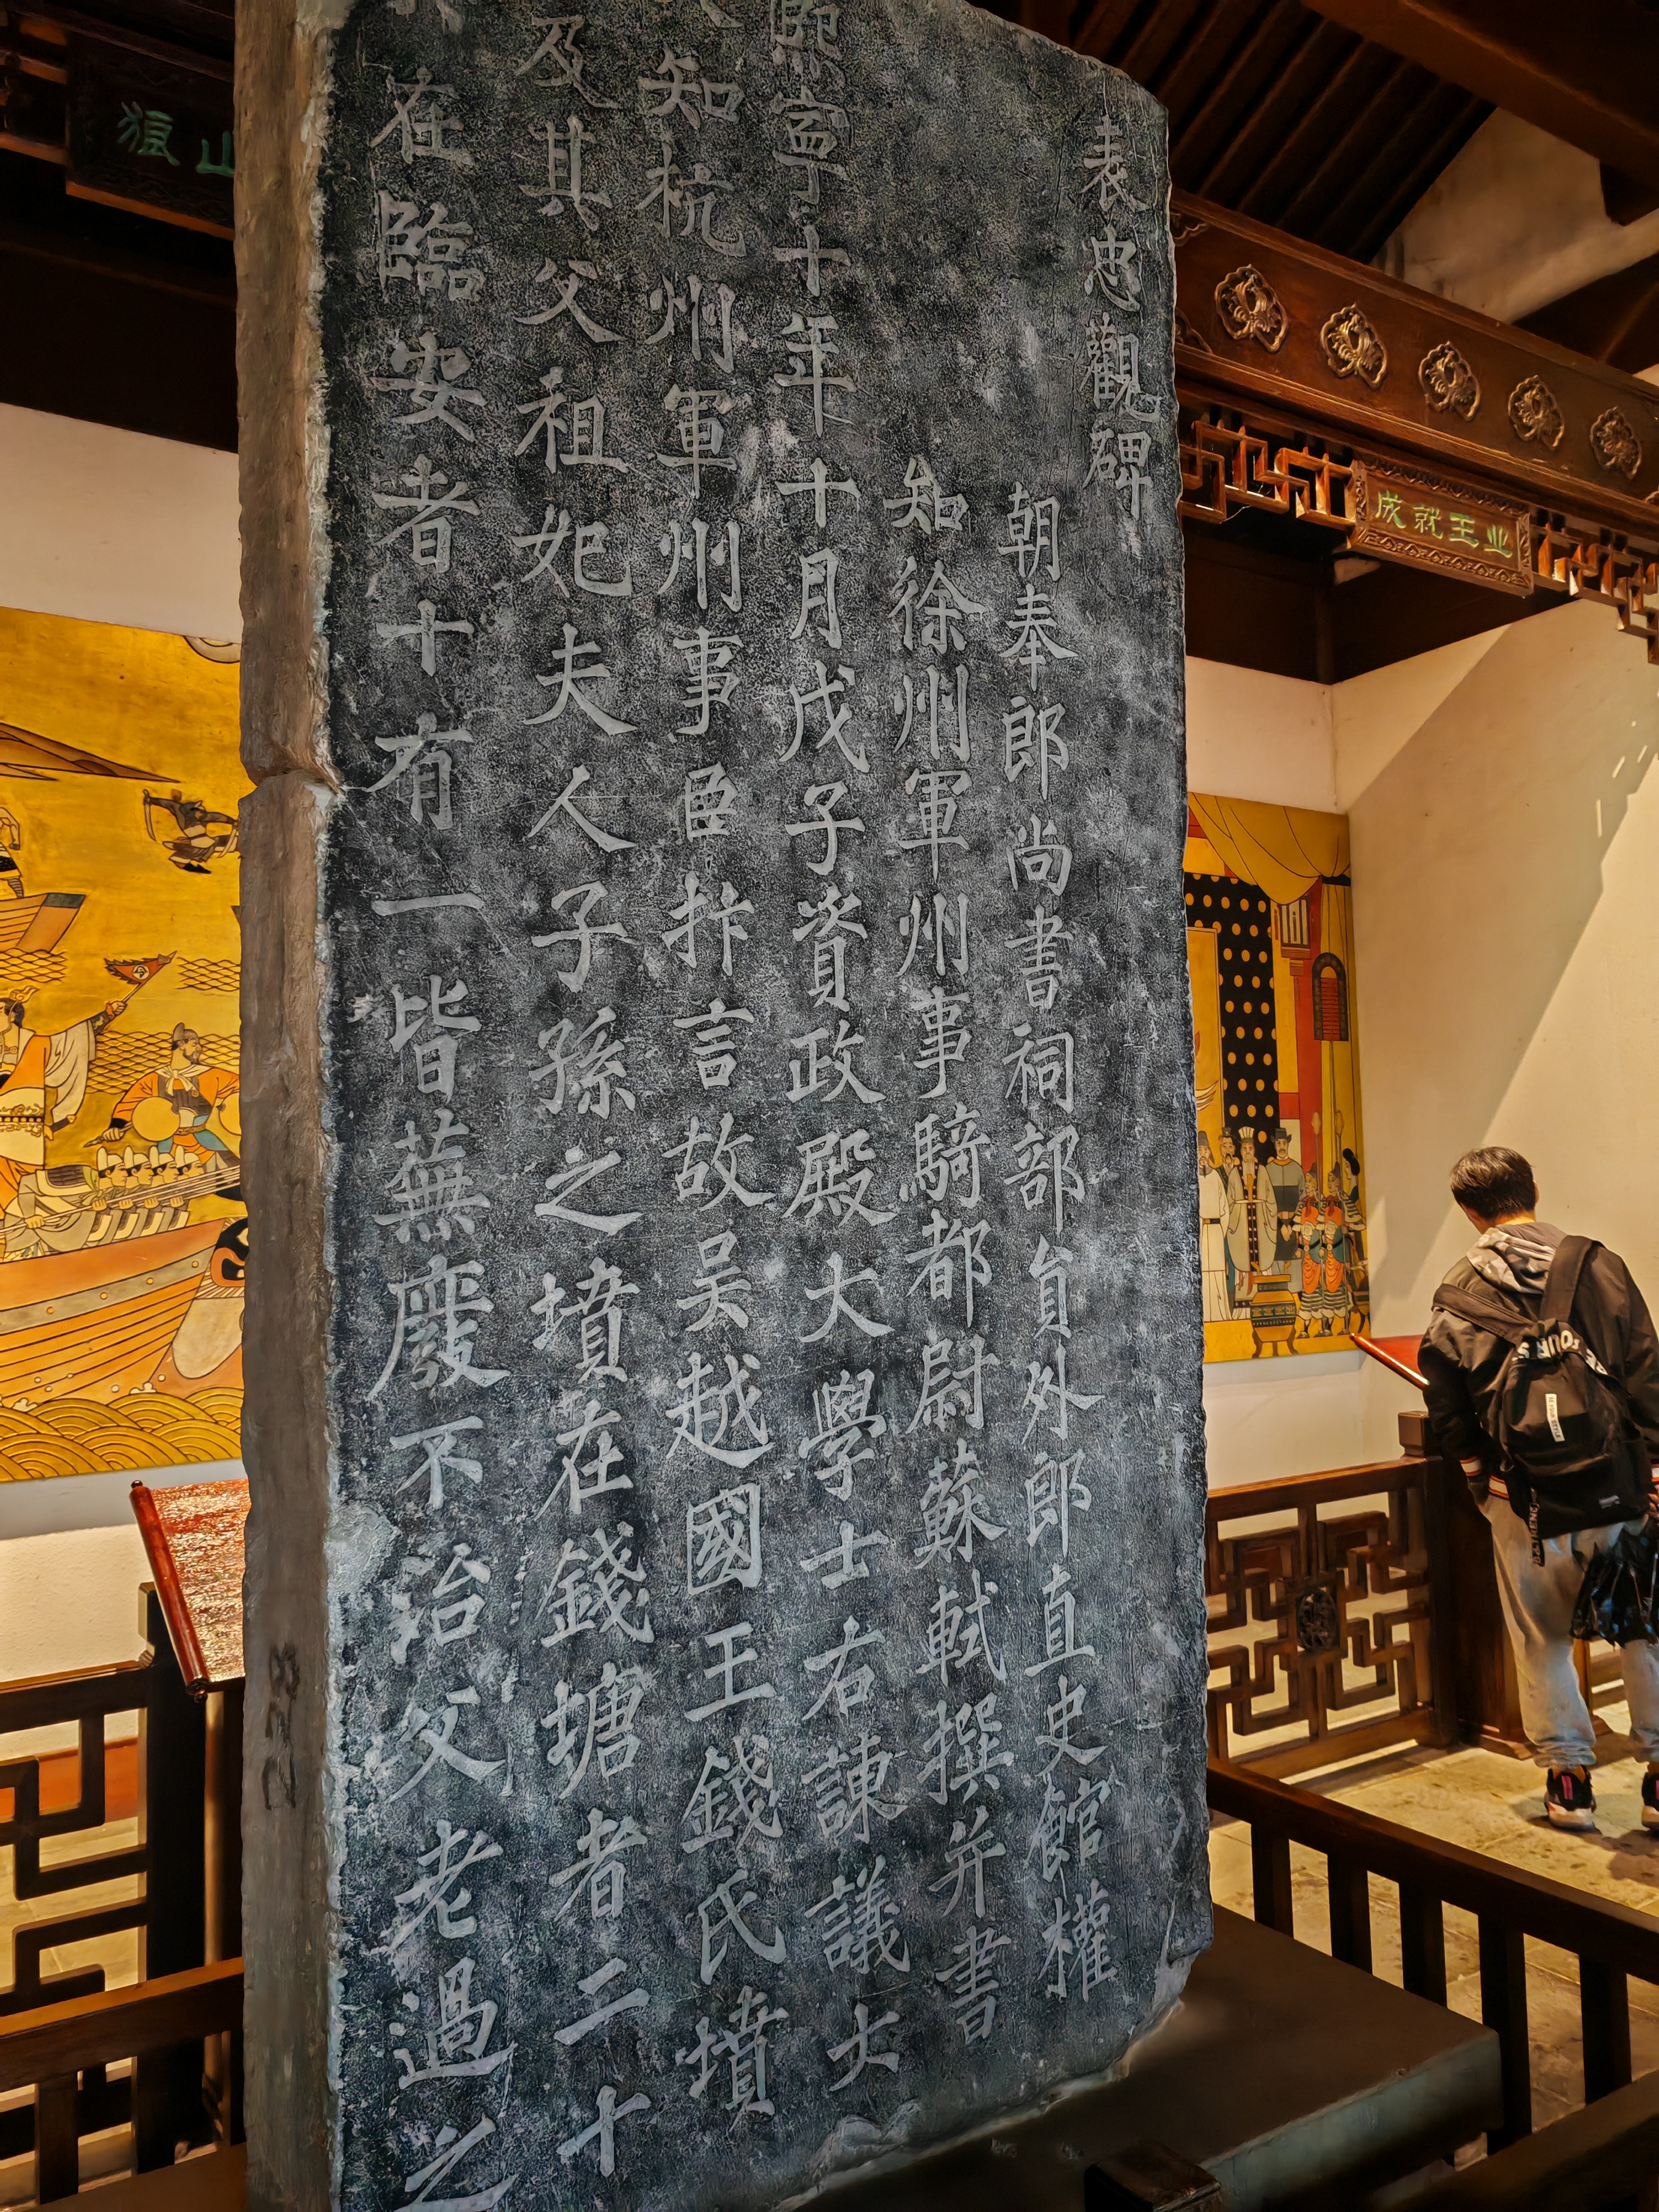 表忠觀碑
朝奉郎尚書祠部員外郎直史館權
知徐州軍州事騎都尉蘇軾撰并書
熙寧十年十月戊子資政殿大學士右諫議大
知杭州軍州事臣抃言故吳越國王錢氏墳
及其父祖妃夫人子孫之墳在錢塘者二十
在臨安者十有一皆蕪廢不治父老過之
成就王业
山